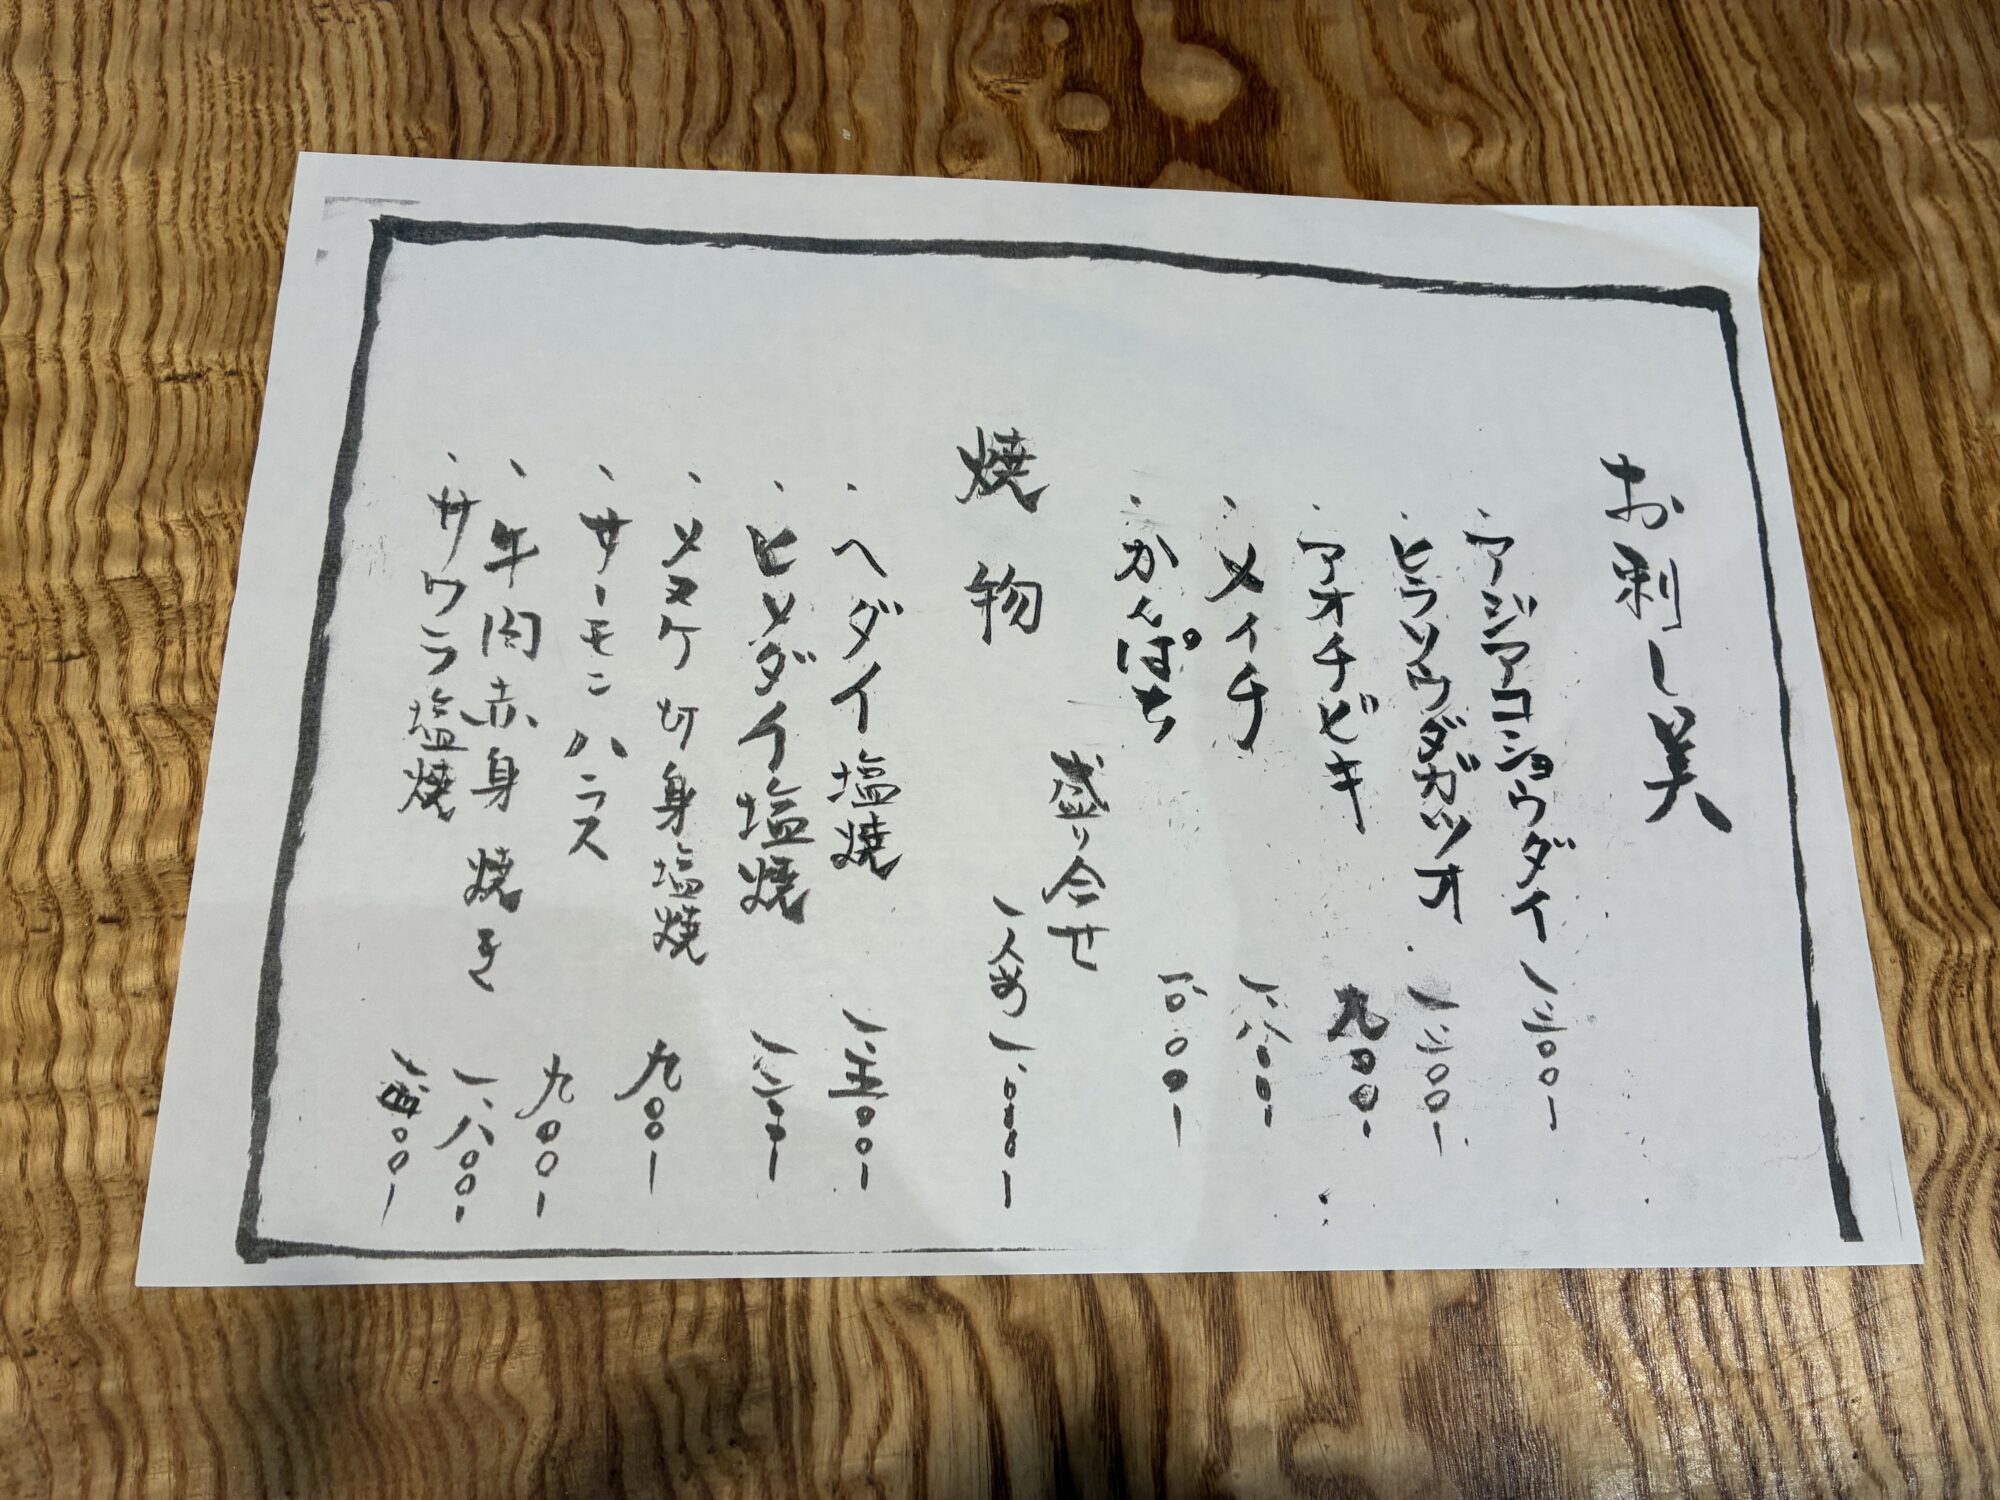 お刺し美
、アジアコショウダイ 一、二〇〇ー
、ヒラソウダガツオ 一、二〇〇ー
、アオチビキ 九〇〇ー
、メイチ 一、八〇〇ー
、かんぱち 一、〇〇〇ー
盛り合せ
一人前 一、〇〇〇ー
焼物
、ヘダイ塩焼 一、五〇〇ー
、ヒメダイ塩焼 一、二〇〇ー
、メヌケ切身塩焼 九〇〇ー
、サーモンハラス 九〇〇ー
、牛肉赤身焼き 一、八〇〇ー
、サワラ塩焼 一、四〇〇ー